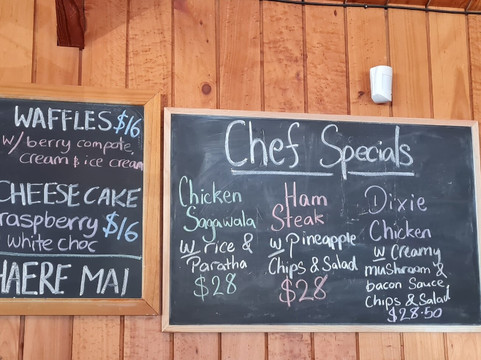 WAFFLES $16
w/ berry compote,
cream & ice cream
CHEESE CAKE
raspberry $16
white choc
HAERE MAI
Chef Specials
Chicken
Saagwala
w rice &
Paratha
$28
Ham
Steak
w Pineapple
Chips & Salad
$28
Dixie
Chicken
w Creamy
mushroom &
bacon Sauce,
Chips & Salad
$28.50